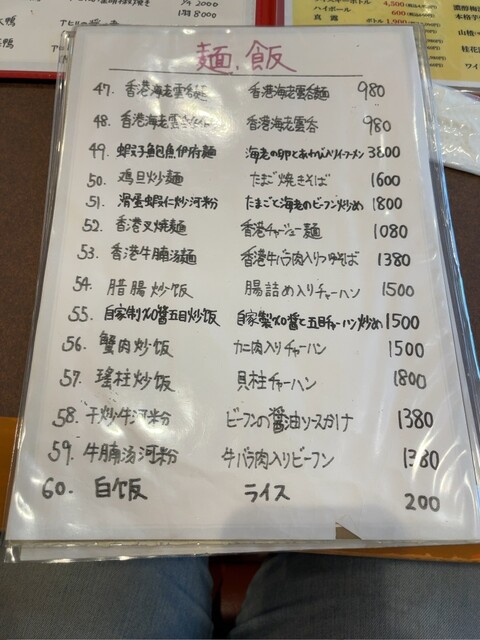 1ﾀ 2000
1羽 8000
4,500
ハイボール 600
真露 ボトル 1,900
麺、飯
47. 香港海老雲呑麺 香港海老雲呑麺 980
48. 香港海老雲呑 香港海老雲呑 980
49. 蝦子鮑魚伊府麺 海老の卵とあわびイーフーメン 3800
50. 鸡旦炒麺 たまご焼きそば 1600
51. 滑蛋蝦仁炒河粉 たまごと海老のビーフン炒め 1800
52. 香港叉焼麺 香港チャーシュー麺 1080
53. 香港牛腩汤麺 香港牛バラ肉入りつゆそば 1380
54. 腊腸炒飯 腸詰め入りチャーハン 1500
55. 自家制XO醤五目炒飯 自家製XO醤と五目チャーハン炒め 1500
56. 蟹肉炒飯 カニ肉入りチャーハン 1500
57. 瑤柱炒飯 貝柱チャーハン 1800
58. 干炒牛河粉 ビーフンの醤油ソースかけ 1380
59. 牛腩汤河粉 牛バラ肉入りビーフン 1380
60. 白饭 ライス 200